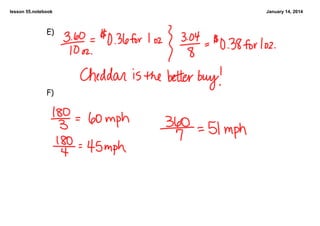 lesson 55.notebook January 14, 2014
E) 3.60/10 oz. = $0.36 for 1 oz } 3.04/8 = $0.38 for 1 oz.
Cheddar is the better buy!
F)
180/3 = 60 mph 360/7 = 51 mph
180/4 = 45 mph